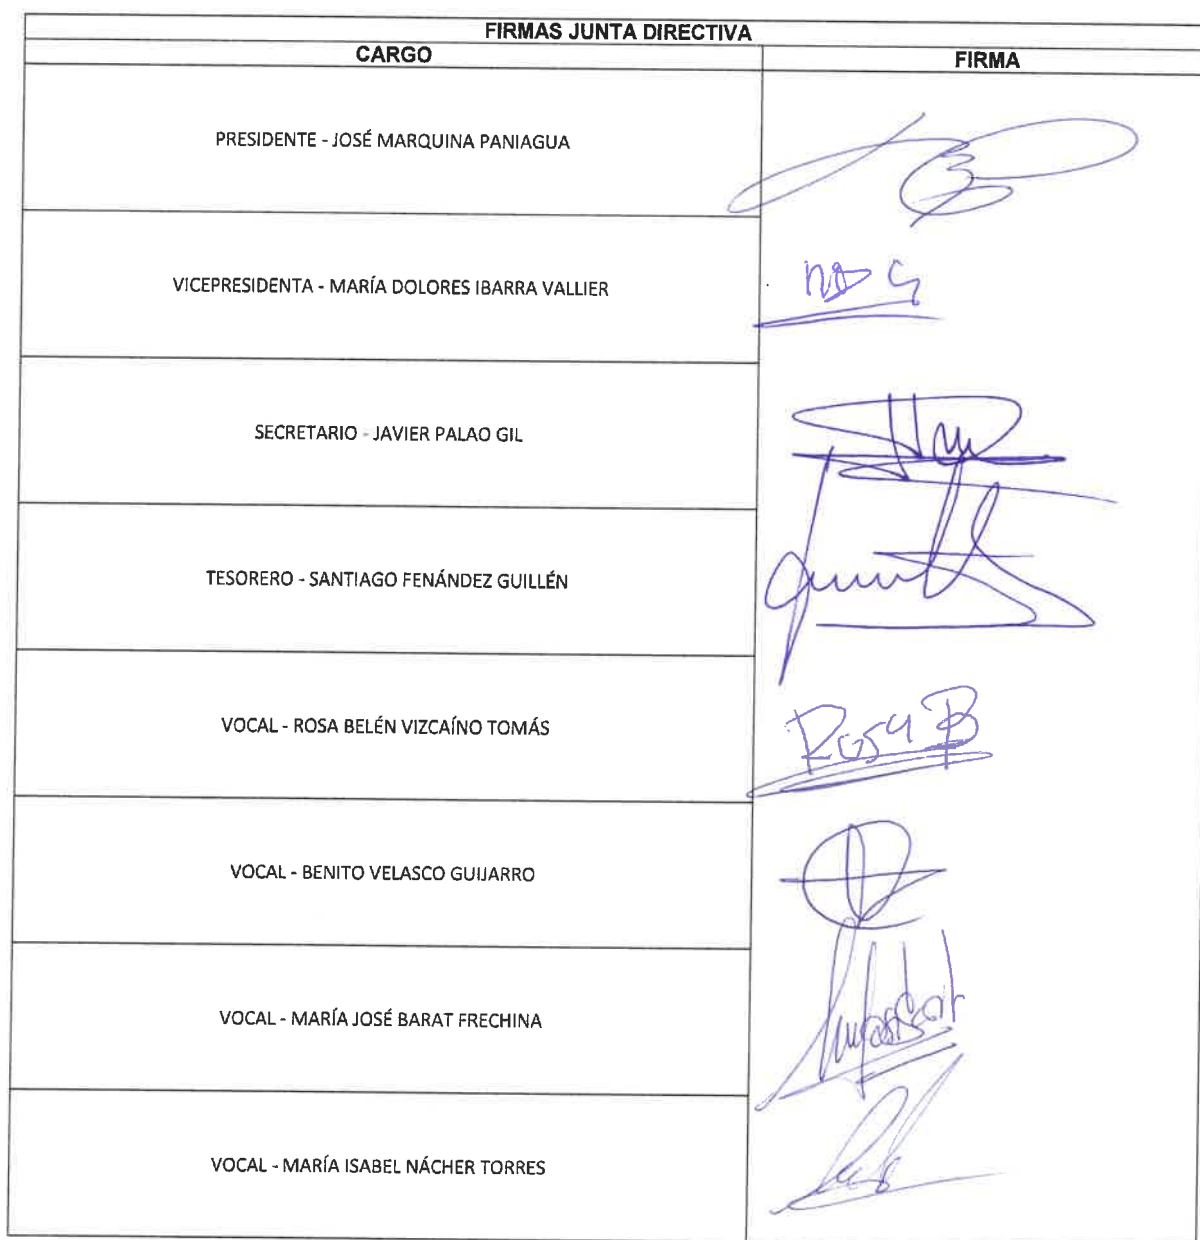 FIRMAS JUNTA DIRECTIVA
CARGO FIRMA
PRESIDENTE - JOSÉ MARQUINA PANIAGUA
VICEPRESIDENTA - MARÍA DOLORES IBARRA VALLIER
SECRETARIO - JAVIER PALAO GIL
TESORERO - SANTIAGO FENÁNDEZ GUILLÉN
VOCAL - ROSA BELÉN VIZCAÍNO TOMÁS Rosa B
VOCAL - BENITO VELASCO GUIJARRO
VOCAL - MARÍA JOSÉ BARAT FRECHINA
VOCAL - MARÍA ISABEL NÁCHER TORRES